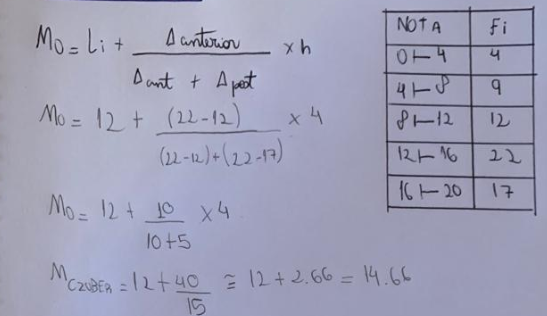 Mo = Li + Δanterior / Δant + Δpost × h
Mo = 12 + (22-12) / (22-12)+(22-17) × 4
Mo = 12 + 10 / 10+5 × 4
M CZUBER = 12 + 40 / 15 ≅ 12 + 2.66 = 14.66
NOTA Fi
0⊢4 4
4⊢8 9
8⊢12 12
12⊢16 22
16⊢20 17